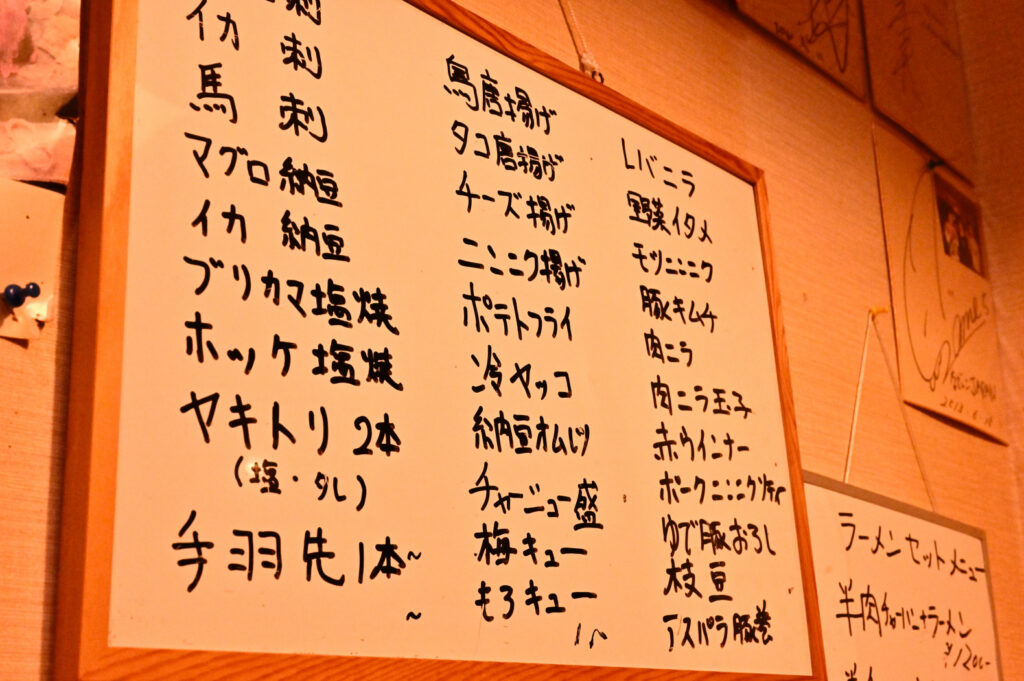 刺
イカ 刺
馬 刺
マグロ納豆
イカ 納豆
ブリカマ塩焼
ホッケ塩焼
ヤキトリ 2本
(塩・タレ)
手羽先 1本~
~
鳥唐揚げ
タコ唐揚げ
チーズ揚げ
ニンニク揚げ
ポテトフライ
冷ヤッコ
納豆オムレツ
チャージュー盛
梅キュー
もろキュー
レバニラ
野菜イタメ
モツニンニク
豚キムチ
肉ニラ
肉ニラ玉子
赤ウインナー
ポークニンニクソテー
ゆで豚おろし
枝豆
アスパラ豚巻
ラーメンセットメニュー
羊肉チャーハン+ラーメン
¥1200-